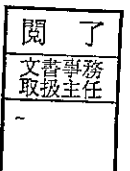 閲了
文書事務
取扱主任
~